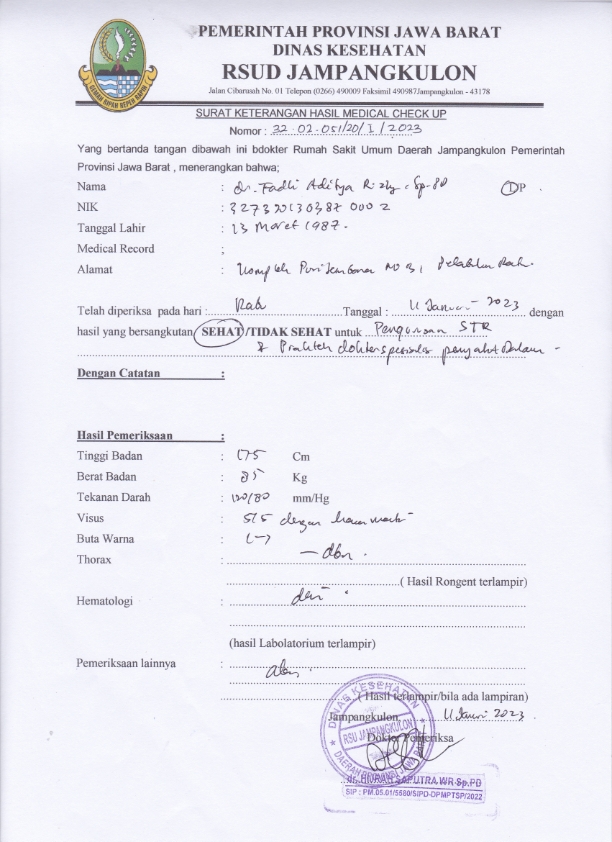 PEMERINTAH PROVINSI JAWA BARAT
DINAS KESEHATAN
RSUD JAMPANGKULON
Jalan Cibarusah No. 01 Telepon (0266) 490009 Faksimil 490987Jampangkulon - 43178
SURAT KETERANGAN HASIL MEDICAL CHECK UP
Nomor : 32.02.051/20/I/2023
Yang bertanda tangan dibawah ini bdokter Rumah Sakit Umum Daerah Jampangkulon Pemerintah
Provinsi Jawa Barat , menerangkan bahwa;
Nama : dr. Fadli Aditya Rizky. Sp.PD
NIK :
Tanggal Lahir : 13 Maret 1987.
Medical Record ;
Alamat :
Telah diperiksa pada hari : Rabu Tanggal : 11 Januari 2023 dengan
hasil yang bersangkutan SEHAT/TIDAK SEHAT untuk Pengurusan STR
& Praktek dokter spesialis penyakit Dalam -
Dengan Catatan :
Hasil Pemeriksaan :
Tinggi Badan : 175 Cm
Berat Badan : 85 Kg
Tekanan Darah : 120/80 mm/Hg
Visus : 5/5 dengan
Buta Warna : (-)
Thorax : - dbn.
( Hasil Rongent terlampir)
Hematologi :
(hasil Labolatorium terlampir)
Pemeriksaan lainnya :
( Hasil terlampir/bila ada lampiran)
Jampangkulon, 11 Januari 2023
Dokter Pemeriksa
DINAS KESEHATAN
RSU JAMPANGKULON
DAERAH PROVINSI JAWA BARAT
SAPUTRA WR Sp.PD
SIP : PM.05.01/5580/SIPD-DPMPTSP/2022